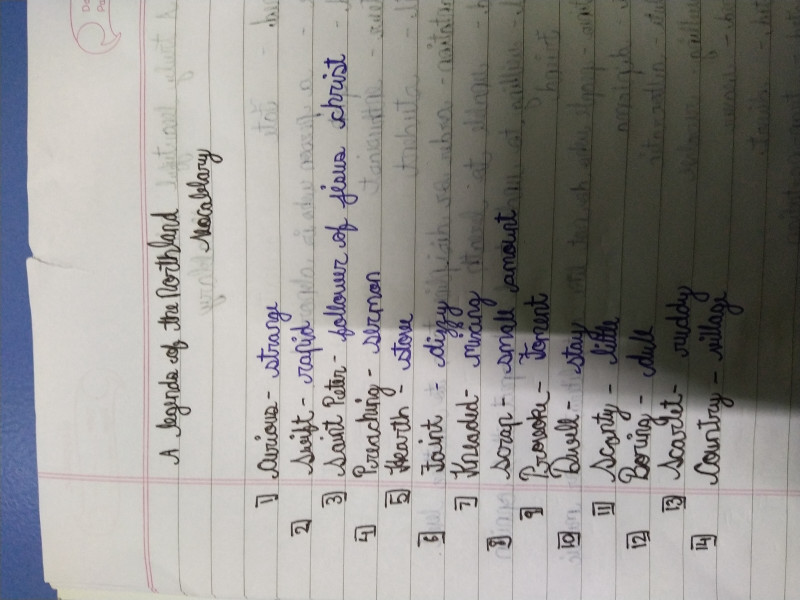 A legends of the Northland
Vocabulary
1) Curious - strange
2) Swift - rapid
3) Saint Peter - follower of jesus christ
4) Preaching - sermon
5) Hearth - stove
6) Faint - dizzy
7) Kneaded - mixing
8) scrap - small amount
9 Provoke - Torent
10 Dwell - stay
11) Scanty - little
12) Boring - dull
13 Scarlet - ruddy
14) Country - village